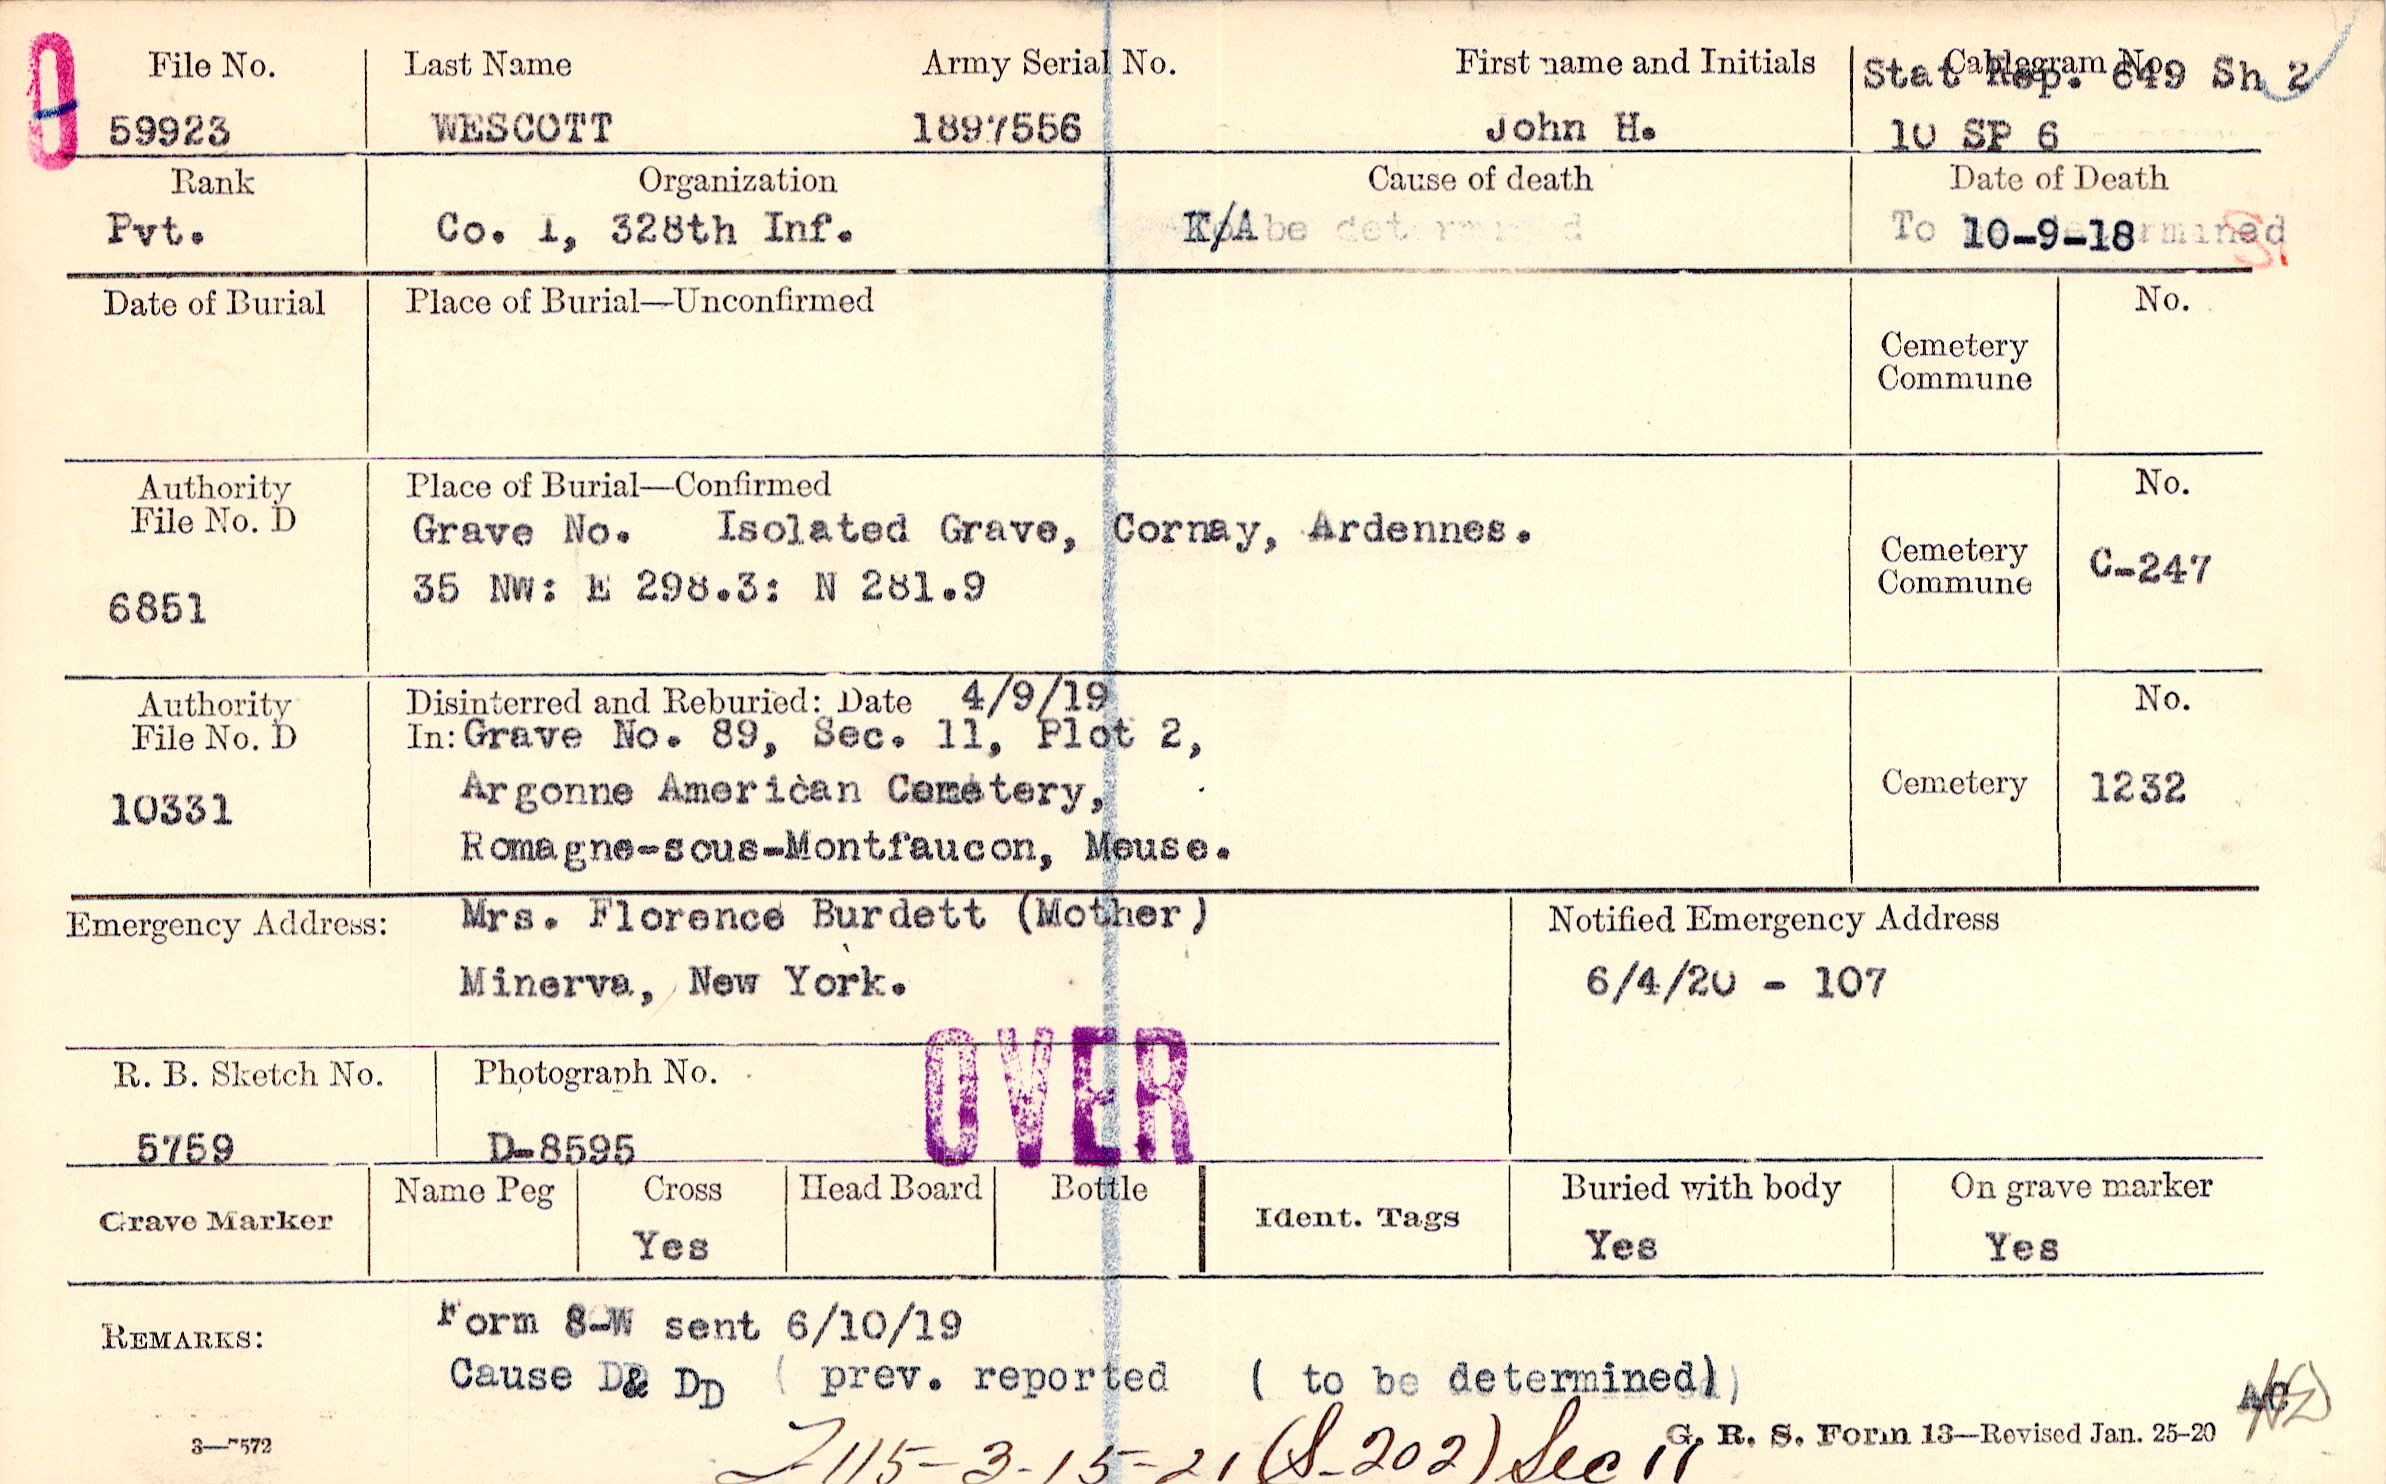 File No. Last Name Army Serial No. First name and Initials Cablegram No.
Stat Rep. 649 Sh 2
59923 WESCOTT 1897556 John H. 10 SP 6
Rank Organization Cause of death Date of Death
Pvt. Co. I, 328th Inf. K/A 10-9-18
Date of Burial Place of Burial—Unconfirmed No.
Cemetery
Commune
Authority Place of Burial—Confirmed No.
File No. D Grave No. Isolated Grave, Cornay, Ardennes.
Cemetery
Commune C-247
6851 35 NW: E 298.3: N 281.9
Authority Disinterred and Reburied: Date 4/9/19 No.
File No. D In: Grave No. 89, Sec. 11, Plot 2,
10331 Argonne American Cemetery, Cemetery 1232
Romagne-sous-Montfaucon, Meuse.
Emergency Address: Mrs. Florence Burdett (Mother) Notified Emergency Address
Minerva, New York. 6/4/20 - 107
OVER
R. B. Sketch No. Photograph No.
5759 D-8595
Grave Marker Name Peg Cross Head Board Bottle Ident. Tags Buried with body On grave marker
Yes Yes Yes
REMARKS: Form 8-W sent 6/10/19
Cause D& DD ( prev. reported ( to be determined)
3—7572 G. R. S. Form 13—Revised Jan. 25-20
115-3-15-21 (S-202) Sec 11